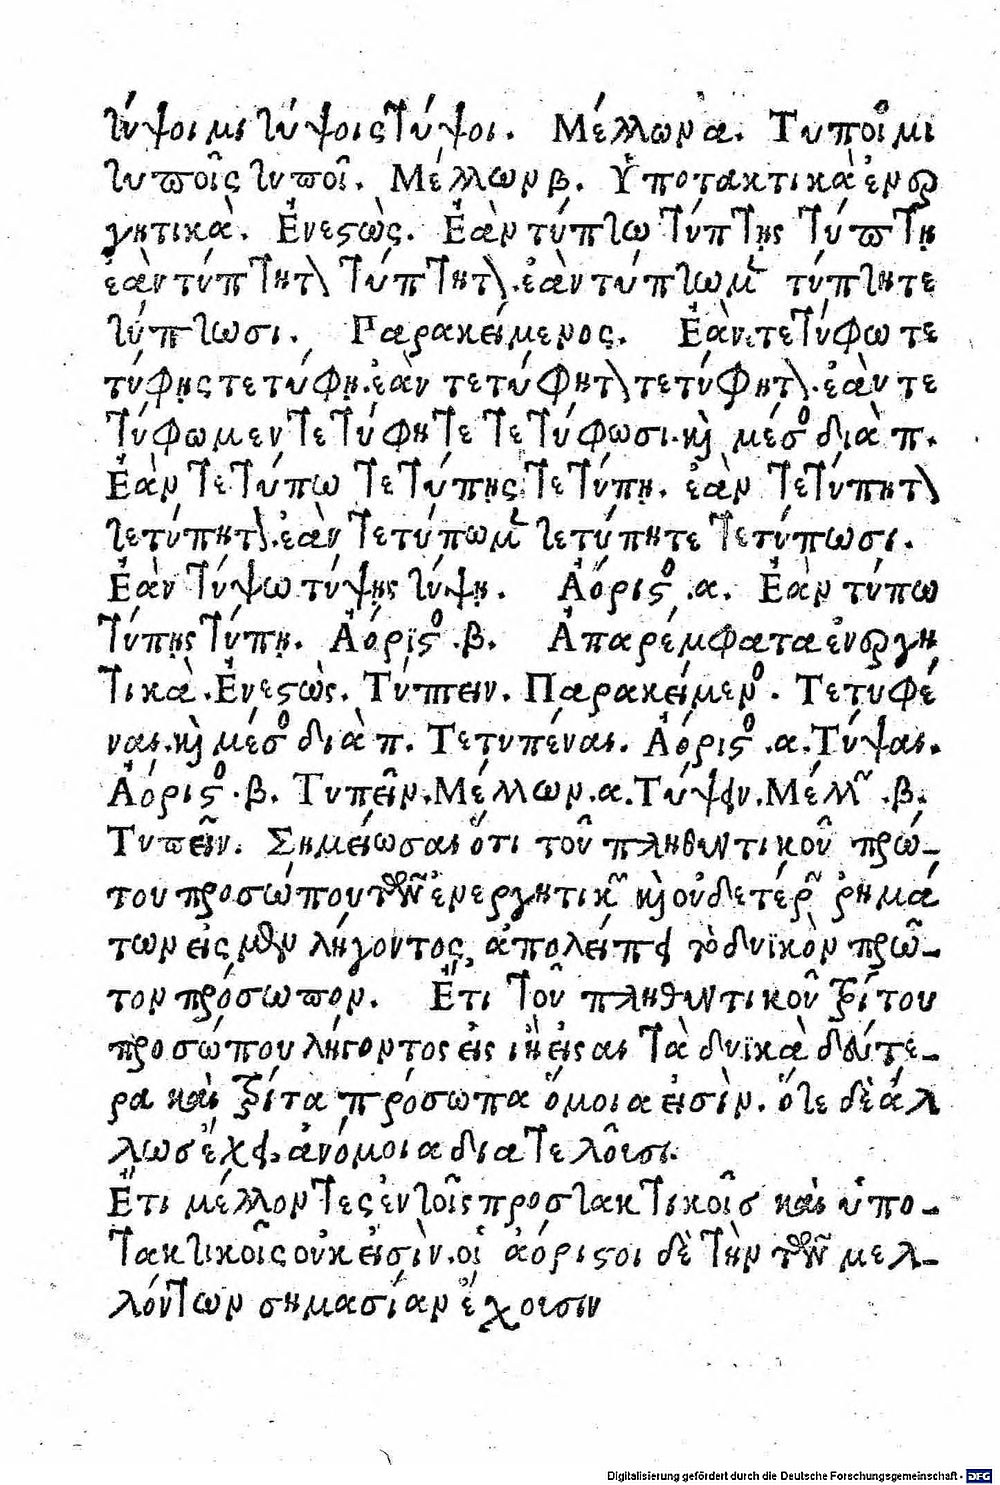 τύψοιμι τύψοις τύψοι. Μέλλων α. Τυποῖμι
τυποῖς τυποῖ. Μέλλων β. Ὑποτακτικὰ ἐνερ
γητικὰ. Ἐνεστὼς. Ἐὰν τύπτω τύπτῃς τύπτῃ
ἐὰν τύπτητον τύπτητον. ἐὰν τύπτωμεν τύπτητε
τύπτωσι. Παρακείμενος. Ἐὰν τετύφω τε
τύφῃς τετύφῃ. ἐὰν τετύφητον τετύφητον. ἐὰν τε
τύφωμεν τετύφητε τετύφωσι. καὶ μέσος διὰ π.
Ἐὰν τετύπω τετύπῃς τετύπῃ. ἐὰν τετύπητον
τετύπητον. ἐὰν τετύπωμεν τετύπητε τετύπωσι.
Ἐὰν τύψω τύψῃς τύψῃ. Ἀόριστος .α. Ἐὰν τύπω
τύπῃς τύπῃ. Ἀόριστος .β. Ἀπαρέμφατα ἐνεργη
τικὰ. Ἐνεστὼς. Τύπτειν. Παρακείμενος. Τετυφέ
ναι. καὶ μέσος διὰ π. Τετυπέναι. Ἀόριστος .α. Τύψαι.
Ἀόριστος .β. Τυπεῖν. Μέλλων .α. Τύψειν. Μέλλων .β.
Τυπεῖν. Σημείωσαι ὅτι τοῦ πληθυντικοῦ πρώ-
του προσώπου τῶν ἐνεργητικῶν καὶ οὐδετέρων ῥημά
των εἰς μεν λήγοντος, ἀπολείπει τὸ δυϊκὸν πρῶ-
τον πρόσωπον. Ἔτι τοῦ πληθυντικοῦ τρίτου
προσώπου λήγοντος εἰς ιν ἢ εἰς αι τὰ δυϊκὰ δεύτε-
ρα καὶ τρίτα πρόσωπα ὅμοια εἰσὶν. ὅτε δὲ ἀλ
λωσ ἔχει, ἀνόμοια διατελοῦσι.
Ἔτι μέλλοντες ἐν τοῖς προστακτικοῖσ καὶ ὑπο-
τακτικοῖς οὐκ εἰσὶν. οἱ ἀόριστοι δὲ τὴν τῶν μελ-
λόντων σημασίαν ἔχουσιν
Digitalisierung gefördert durch die Deutsche Forschungsgemeinschaft - DFG